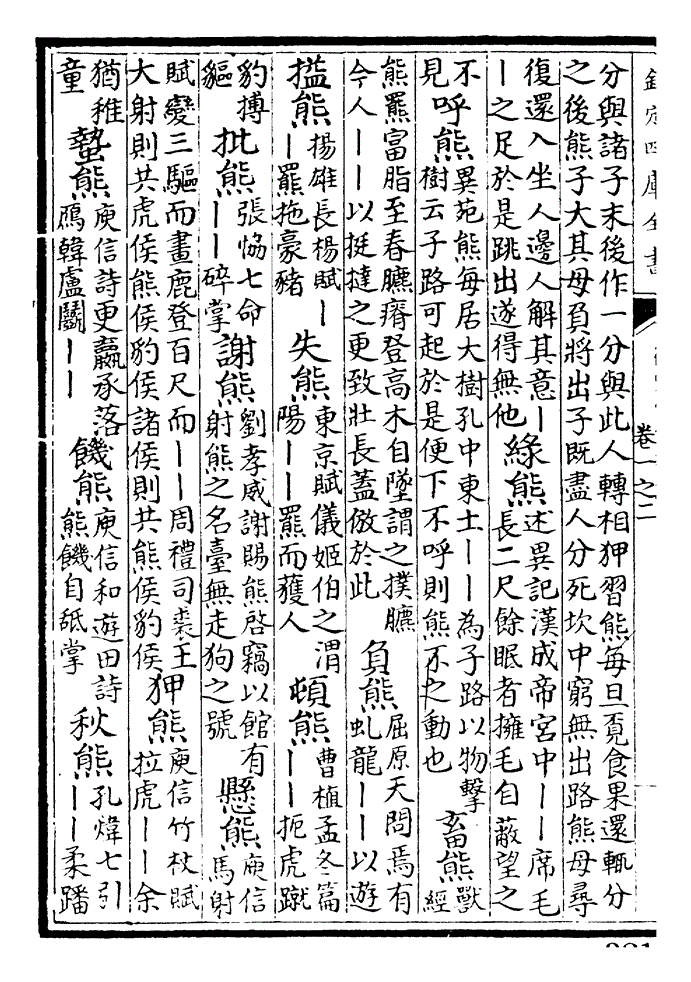 欽定四庫全書
卷一之二
分與諸子末後作一分與此人轉相狎習熊每旦覓食果還輒分
之後熊子大其母負將出子既盡人分死坎中窮無出路熊母尋
復還入坐人邊人解其意丨
丨之足於是跳出遂得無他
緑熊
述異記漢成帝宮中丨丨席毛
長二尺餘眠者擁毛自蔽望之
不
見
呼熊
異苑熊每居大樹孔中東土丨丨為子路以物擊
樹云子路可起於是便下不呼則熊不之動也
畜熊
獸
經
熊羆富脂至春臕癠登高木自墜謂之撲臕
今人丨丨以挺撻之更致壯長蓋倣於此
負熊
屈原天問焉有
虬龍丨丨以遊
搤熊
楊雄長楊賦丨
丨羆拖豪豬
失熊
東京賦儀姬伯之渭
陽丨丨羆而獲人
頓熊
曹植孟冬篇
丨丨扼虎蹴
豹搏
貙
批熊
張恊七命
丨丨碎掌
謝熊
劉孝威謝賜熊啓竊以館有
射熊之名臺無走狗之號
懸熊
庾信
馬射
賦變三驅而畫鹿登百尺而丨丨周禮司裘王
大射則共虎侯熊侯豹侯諸侯則共熊侯豹侯
狎熊
庾信竹杖賦
拉虎丨丨余
猶稚
童
蟄熊
庾信詩更羸承落
鴈韓盧鬭丨丨
饑熊
庾信和遊田詩
熊饑自舐掌
秋熊
孔煒七引
丨丨柔蹯